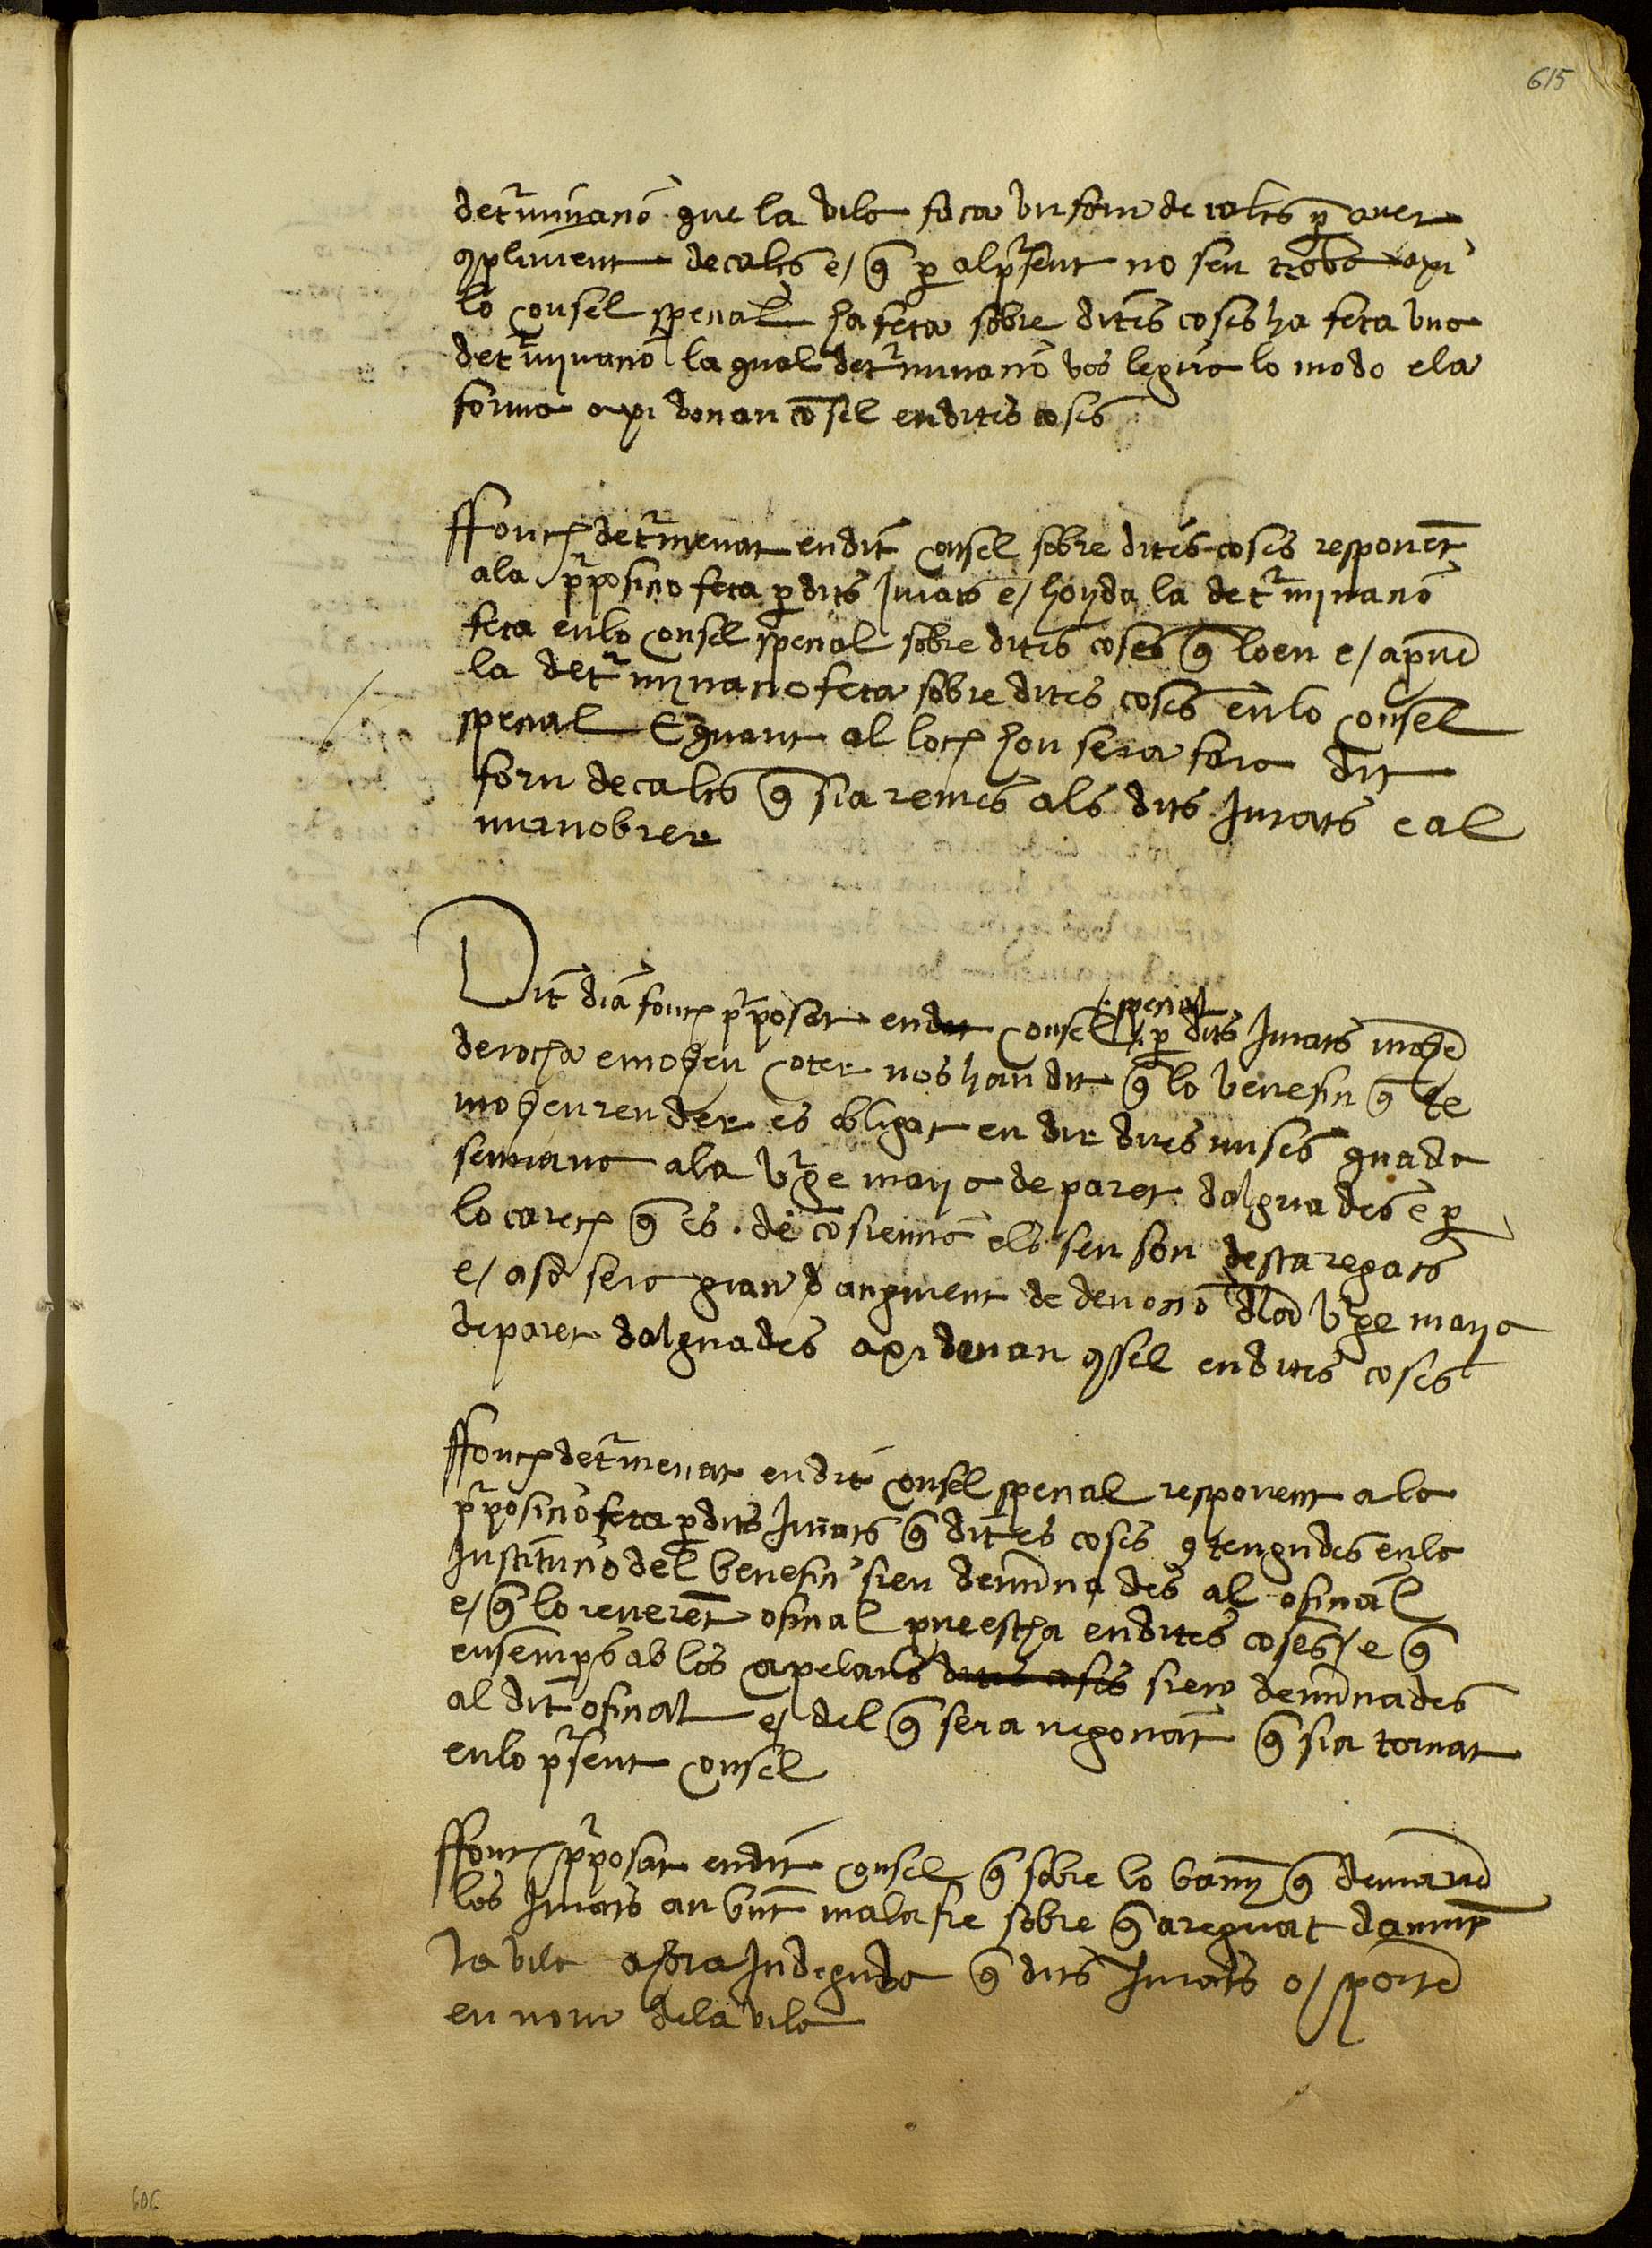 615
determinacio que la vila faca un forn de cals per aver
compliment de cals e / que per al present no sen troba axi
lo consel special ha feta sobre dites coses ha feta una
determinacio la qual determinacio vos legira lo modo e la
forma axi donan consel en dites coses
ffonch determenat en dit consel sobre dites coses responent
a la proposicio feta per dits Jurats e / hoyda la determinacio
feta en lo consel special sobre dites coses que loen e / aproven
la determinacio feta sobre dites coses en lo consel
special E quant al loch hon sera fara dit
forn de cals que sia remes als dits Jurats e al
manobrer
Dit dia fonch proposat en dit consel special per dits Jurats mossen
de rocha e mossen coter nos han dit que lo benefici que te
mossen render es obligat en dir dues mises quada
semmana a la verge maria de paret dalguades e per
lo carech que es de consiencia els sen son destaregats
e / aso sera gran d augment de devocio de la verge maria
de paret dalguades axi donan consel en dites coses
ffonch determenat en dit consel special responent a la
proposicio feta per dits Jurats que dites coses contengudes en la
Institucio del benefici sien denunciades al oficial
e / que lo reverent oficial provescha en dites coses / e que
ensemps ab los apelans dites coses sien denunciades
al dit oficial e / del que sera negociat que sia tornat
en lo present consel
ffonch proposat en dit consel que sobre lo bany que demanen
los Jurats an agut mala fre sobre que a reguat damunt
la vila afora Indeguda que dits Jurats o / porten
en nom de la vila
606